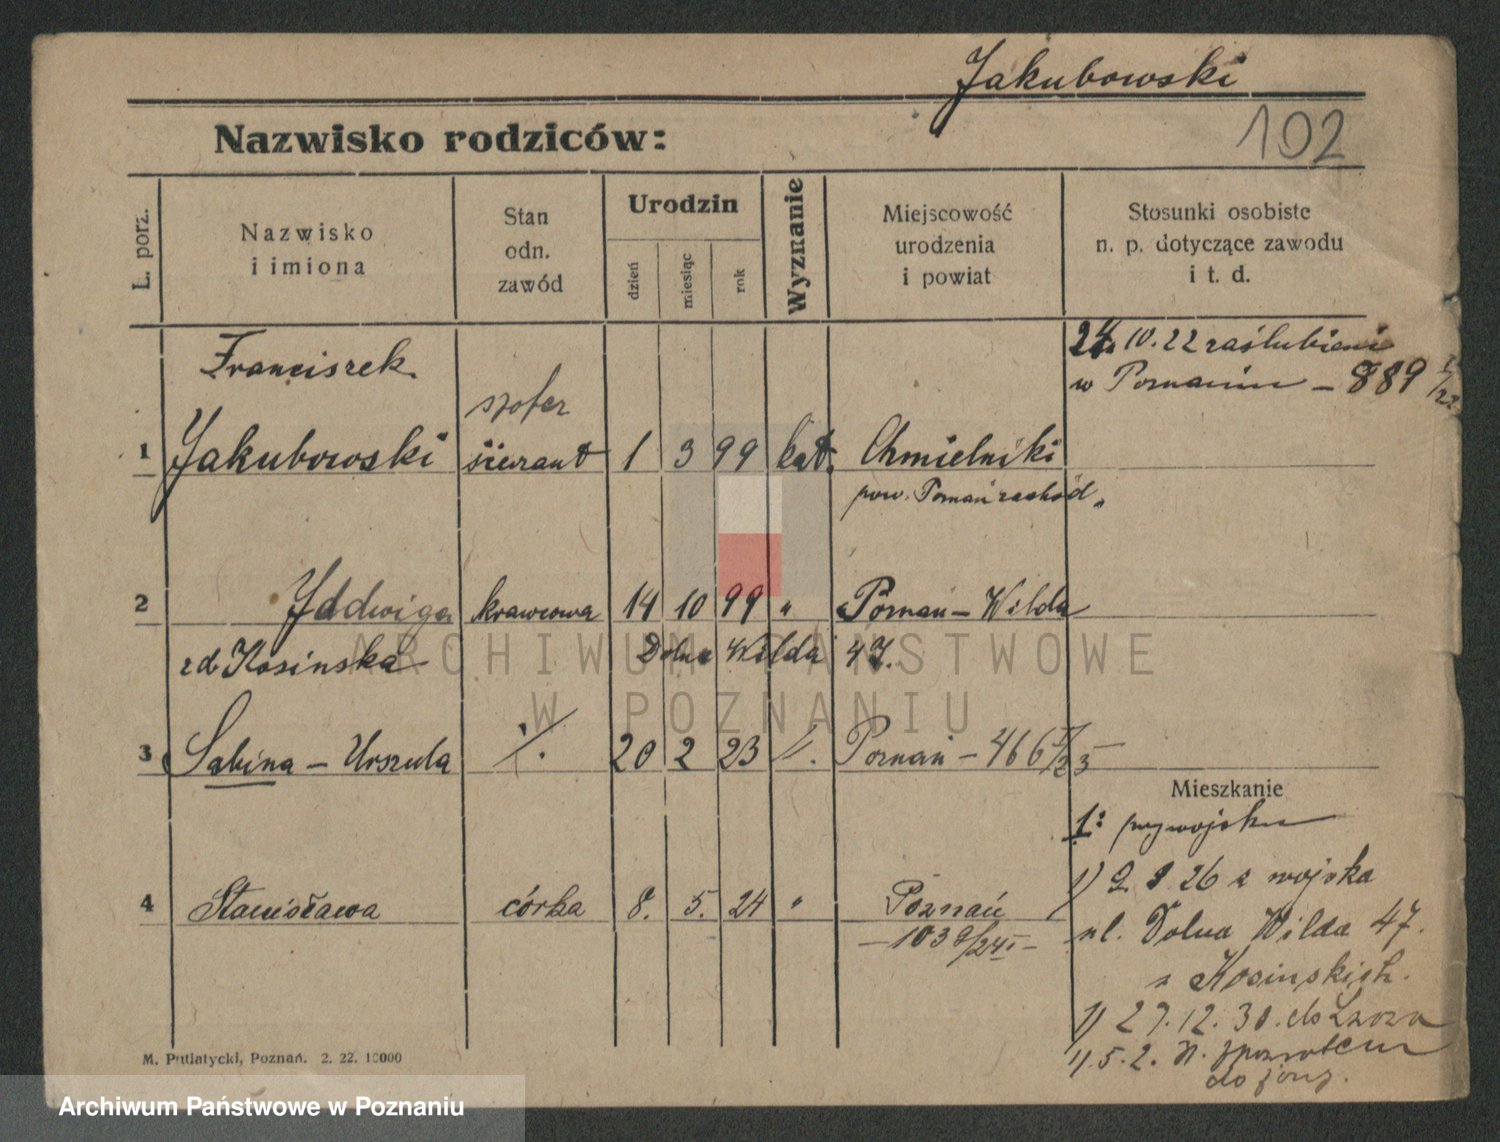 Jakubowski
Nazwisko rodziców:
102
L. porz.
Nazwisko
i imiona
Stan
odn.
zawód
Urodzin
dzień
miesiąc
rok
Wyznanie
Miejscowość
urodzenia
i powiat
Stosunki osobiste
n. p. dotyczące zawodu
i t. d.
24. 10. 22 zaślubieni
w Poznaniu – 889 /22
Franciszek
szofer
1 Jakubowski 1 3 99 kat. Chmielniki
pow. Poznań zachód.
2 Jadwiga krawcowa 14 10 99 " Poznań – Wilda
zd Kosinska Dolna Wilda 47.
3 Sabina – Urszula ./. 20 2 23 Poznań – 466 /23
Mieszkanie
1: przy wojsku
4 Stanisława córka 8. 5. 24 " Poznań
– 1039/24 I –
1) 2. 9 26 z wojska
ul. Dolna Wilda 47.
s Kosinskich.
1) 27. 12. 30. do
1) 5. 2. z powrotem
do
M. Putiatycki, Poznań. 2. 22. 10000
ARCHIWUM PAŃSTWOWE
W POZNANIU
Archiwum Państwowe w Poznaniu